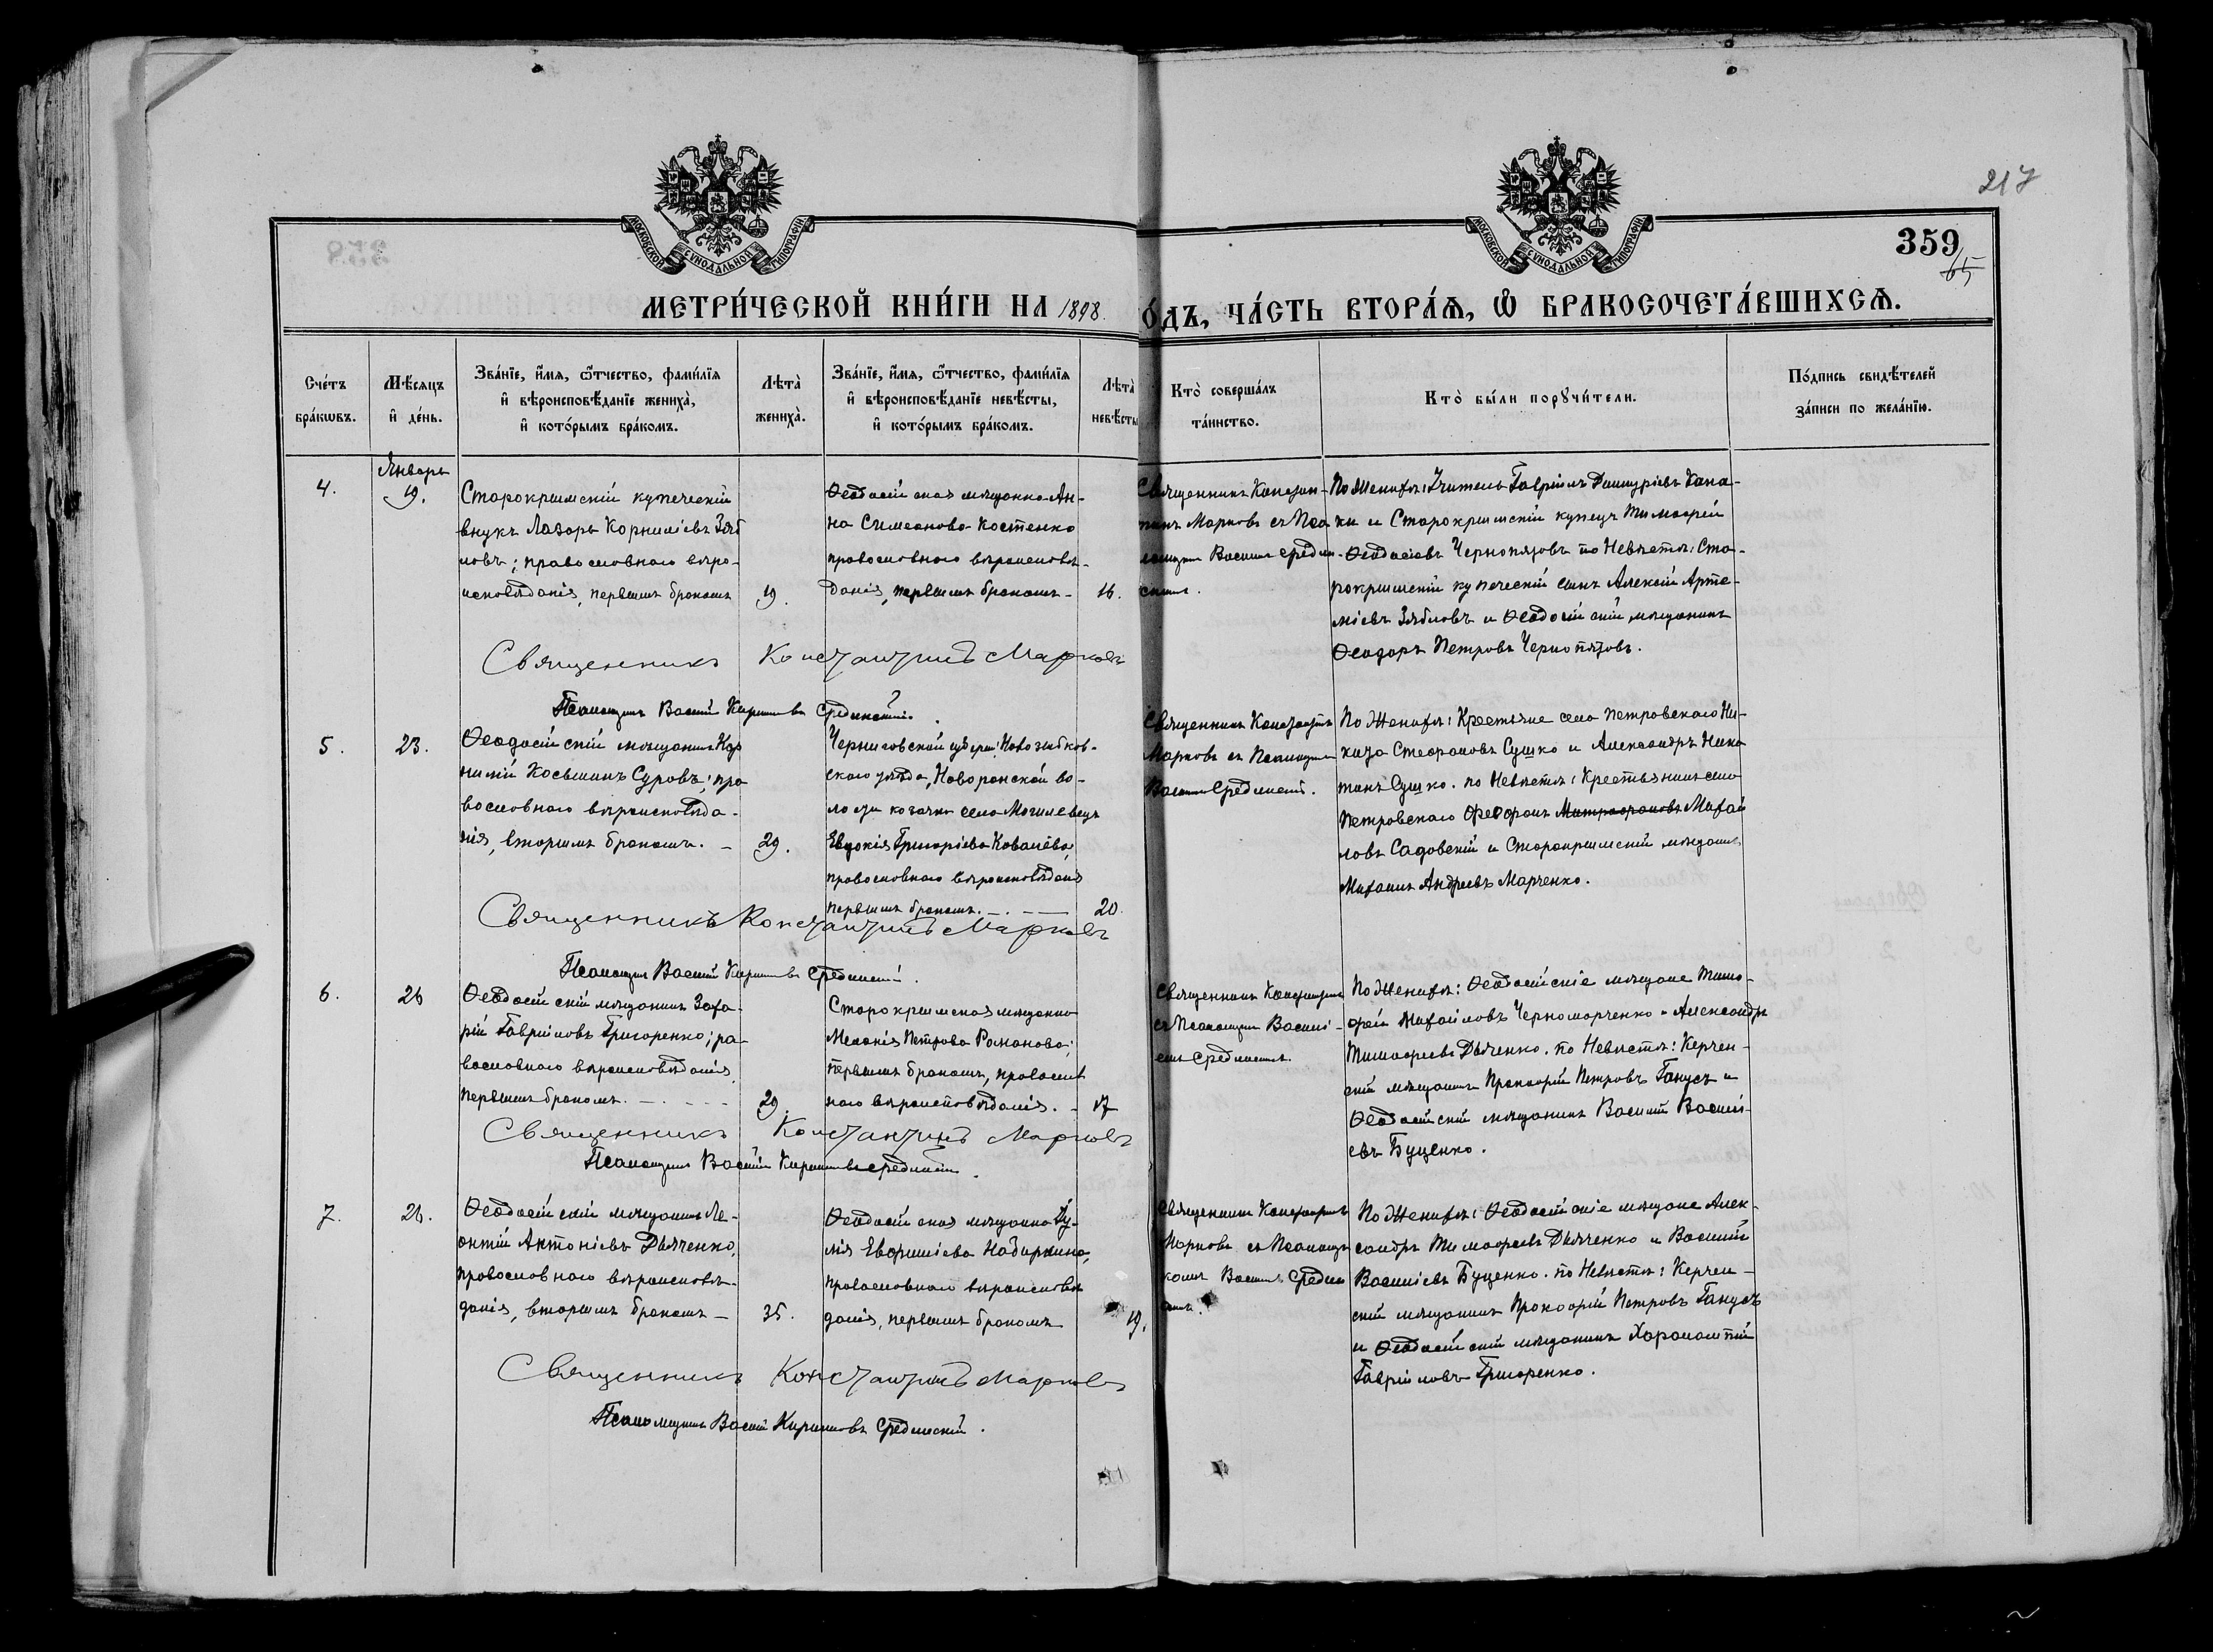 217
359
65
МОСКОВСКОЙ СѴНОДАЛЬНОЙ ТИПОГРАФІИ
МОСКОВСКОЙ СѴНОДАЛЬНОЙ ТИПОГРАФІИ
МЕТРИ́ЧЕСКОЙ КНИ́ГИ НА 1898. О́ДЪ, ЧА́СТЬ ВТОРА́Ѧ, Ѽ БРАКОСОЧЕТА́ВШИХСѦ.
Сче́тъ бра́кѡвъ.
Мѣ́сяцъ и҆ де́нь.
Зва́нїе, и҆́мя, ѻ҆́тчество, фами́лїя
и҆ вѣроисповѣ́данїе жениха̀,
и҆ кото́рымъ бра́комъ.
Лѣта̀ жениха̀.
Зва́нїе, и҆́мя, ѻ҆́тчество, фами́лїя
и҆ вѣроисповѣ́данїе невѣ́сты,
и҆ кото́рымъ бра́комъ.
Лѣта̀ невѣ́сты
Кто̀ соверша́лъ та́инство.
Кто̀ бы́ли порꙋчи́тели.
По́дпись свидѣ́телей за́писи по жела́нїю.
4.
Январь
19.
Старокрымскій купеческій
внукъ Лазарь Корниліевъ Зяб
ловъ; православнаго вѣро-
исповѣданія, первымъ бракомъ
19.
Ѳеодосійская мѣщанка Ан-
на Симеонова Костенко
православнаго вѣроисповѣ-
данія, первымъ бракомъ -
16.
Священникъ Констан-
тинъ Марковъ съ Пса
ломщик Василь Средин-
скимъ.
По Женихѣ: Учитель Гавріилъ Димитріевъ Кана-
ки и Старокрымскій купецъ Тимофей
Ѳеодосіевъ Чернопятовъ по Невѣстѣ: Ста-
рокрымскій купеческій сынъ Алексій Арте-
міевъ Зябловъ и Ѳеодосійскій мѣщанинъ
Ѳеодоръ Петровъ Чернопятовъ.
Священникъ Константинъ Марковъ
Псаломщикъ Василій Кирилловъ Срединскій.
5.
23.
Ѳеодосійскій мѣщанинъ Кор
нилій Косьминъ Суровъ; пра
вославнаго вѣроисповѣда-
нія, вторымъ бракомъ. -
29.
Черниговской губерніи Новозыбков-
скаго уѣзда, Новоропской во-
лости козачка села Могилевецъ
Евдокія Григоріева Ковалёва,
православнаго вѣроисповѣданія
первымъ бракомъ. -
20.
Священникъ Константинъ
Марковъ съ Псаломщик
Василь Срединскій.
По Женихѣ: Крестьяне села Петровскаго Ни-
кита Стефановъ Сушко и Александръ Ника
танъ Сушко. по Невѣстѣ: Крестьянинъ села
Петровскаго Феофанъ Митрофановъ Михаи
ловъ Садовскій и Старокрымскій мѣщанинъ
Михаилъ Андреевъ Марченко.
Священникъ Константинъ Марковъ
Псаломщикъ Василій Кирилловъ Срединскій.
6.
26
Ѳеодосійскій мѣщанинъ Заха-
рій Гавріиловъ Григоренко; ра-
вославнаго вѣроисповѣданія,
первымъ бракомъ. -
29.
Старокрымская мѣщанка
Меланія Петрова Романова;
первымъ бракомъ, православ
наго вѣроисповѣданія. -
17
Священникъ Константинъ
съ Псаломщик Василі-
емъ Срединскимъ.
По Женихѣ: Ѳеодосійскіе мѣщане Тимо-
фей Михайловъ Черномарченко и Александръ
Тимофеевъ Дьяченко. по Невѣстѣ: Керчен-
скій мѣщанинъ Прокофій Петровъ Ганусъ и
Ѳеодосійскій мѣщанинъ Василій Василі-
евъ Буценко.
Священникъ Константинъ Марковъ
Псаломщикъ Василій Кирилловъ Срединскій.
7.
26.
Ѳеодосійскій мѣщанинъ Ле-
онтій Антоніевъ Дьяченко,
православнаго вѣроисповѣ-
данія, вторымъ бракомъ -
35.
Ѳеодосійская мѣщанка Ѵу-
лія Евфиміева Набиркина,
православнаго вѣроисповѣ
данія, первымъ бракомъ
19.
Священникъ Константинъ
Марковъ съ Псаломщи
комъ Василь Средин
скимъ.
По Женихѣ: Ѳеодосійскіе мѣщане Алек-
сандръ Тимофеевъ Дьяченко и Василій
Василіевъ Буценко. по Невѣстѣ: Керчен-
скій мѣщанинъ Прокофій Петровъ Ганусъ
и Ѳеодосійскій мѣщанинъ Харалампій
Гавріиловъ Григоренко.
Священникъ Константинъ Марковъ
Псаломщикъ Василій Кирилловъ Срединскій.